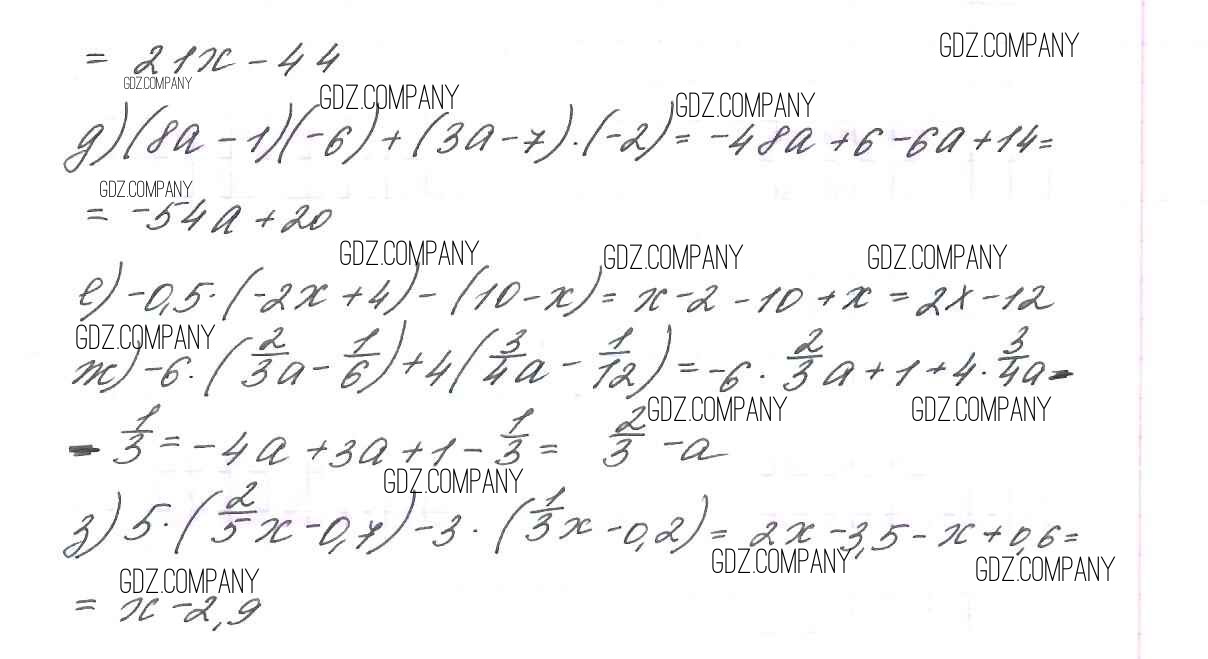 = 21x - 44
GDZ.COMPANY
GDZ.COMPANY
GDZ.COMPANY
GDZ.COMPANY
д) (8a - 1)(-6) + (3a - 7) · (-2) = -48a + 6 - 6a + 14 =
GDZ.COMPANY
= -54a + 20
GDZ.COMPANY
GDZ.COMPANY
GDZ.COMPANY
е) -0,5 · (-2x + 4) - (10 - x) = x - 2 - 10 + x = 2x - 12
GDZ.COMPANY
ж) -6 · (2/3 a - 1/6) + 4(3/4 a - 1/12) = -6 · 2/3 a + 1 + 4 · 3/4 a -
GDZ.COMPANY
GDZ.COMPANY
- 1/3 = -4a + 3a + 1 - 1/3 = 2/3 - a
GDZ.COMPANY
з) 5 · (2/5 x - 0,7) - 3 · (1/3 x - 0,2) = 2x - 3,5 - x + 0,6 =
GDZ.COMPANY
GDZ.COMPANY
GDZ.COMPANY
= x - 2,9